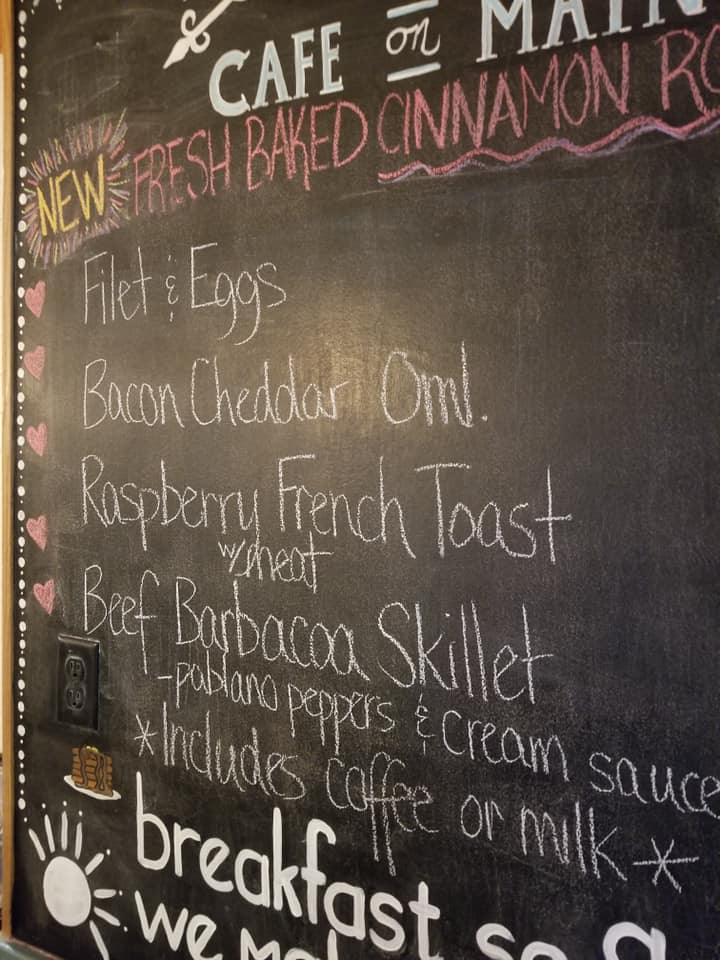 CAFE on MAIN
NEW FRESH BAKED CINNAMON RO
Filet & Eggs
Bacon Cheddar Oml.
Raspberry French Toast
w/meat
Beef Barbacoa Skillet
-pablano peppers & cream sauce
*Includes coffee or milk*
breakfast so g
we mak